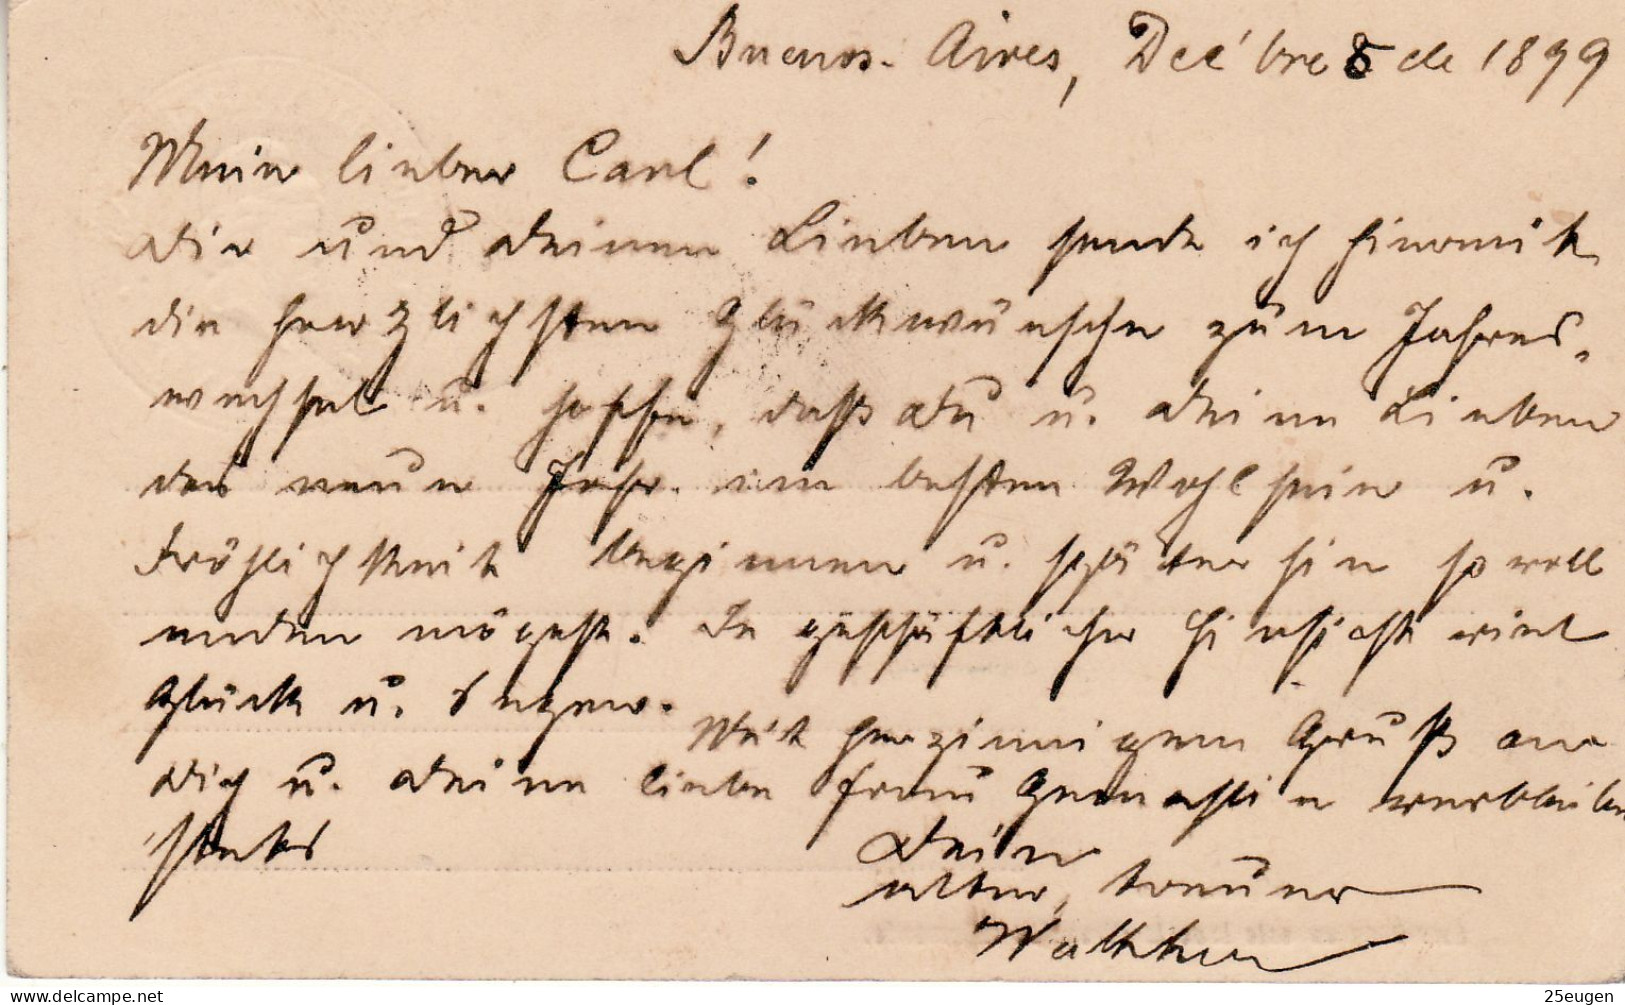 Buenos-Aires, Dec'bre 8 de 1899
Mein lieber Carl!
Dir und Deinen Lieben sende ich hiermit
die herzlichsten Glückwünsche zum Jahres-
wechsel u. hoffe, daß Du u. Deine Lieben
das neue Jahr im besten Wohlsein u.
Fröhlichkeit beginnen u. späterhin so voll
enden möget. In geschäftlicher Hinsicht viel
Glück u. Segen.
Mit herzinnigem Gruß an
Dich u. Deine liebe Frau Gemahlin verbleibe
stets
Dein
alter, treuer
25eugen